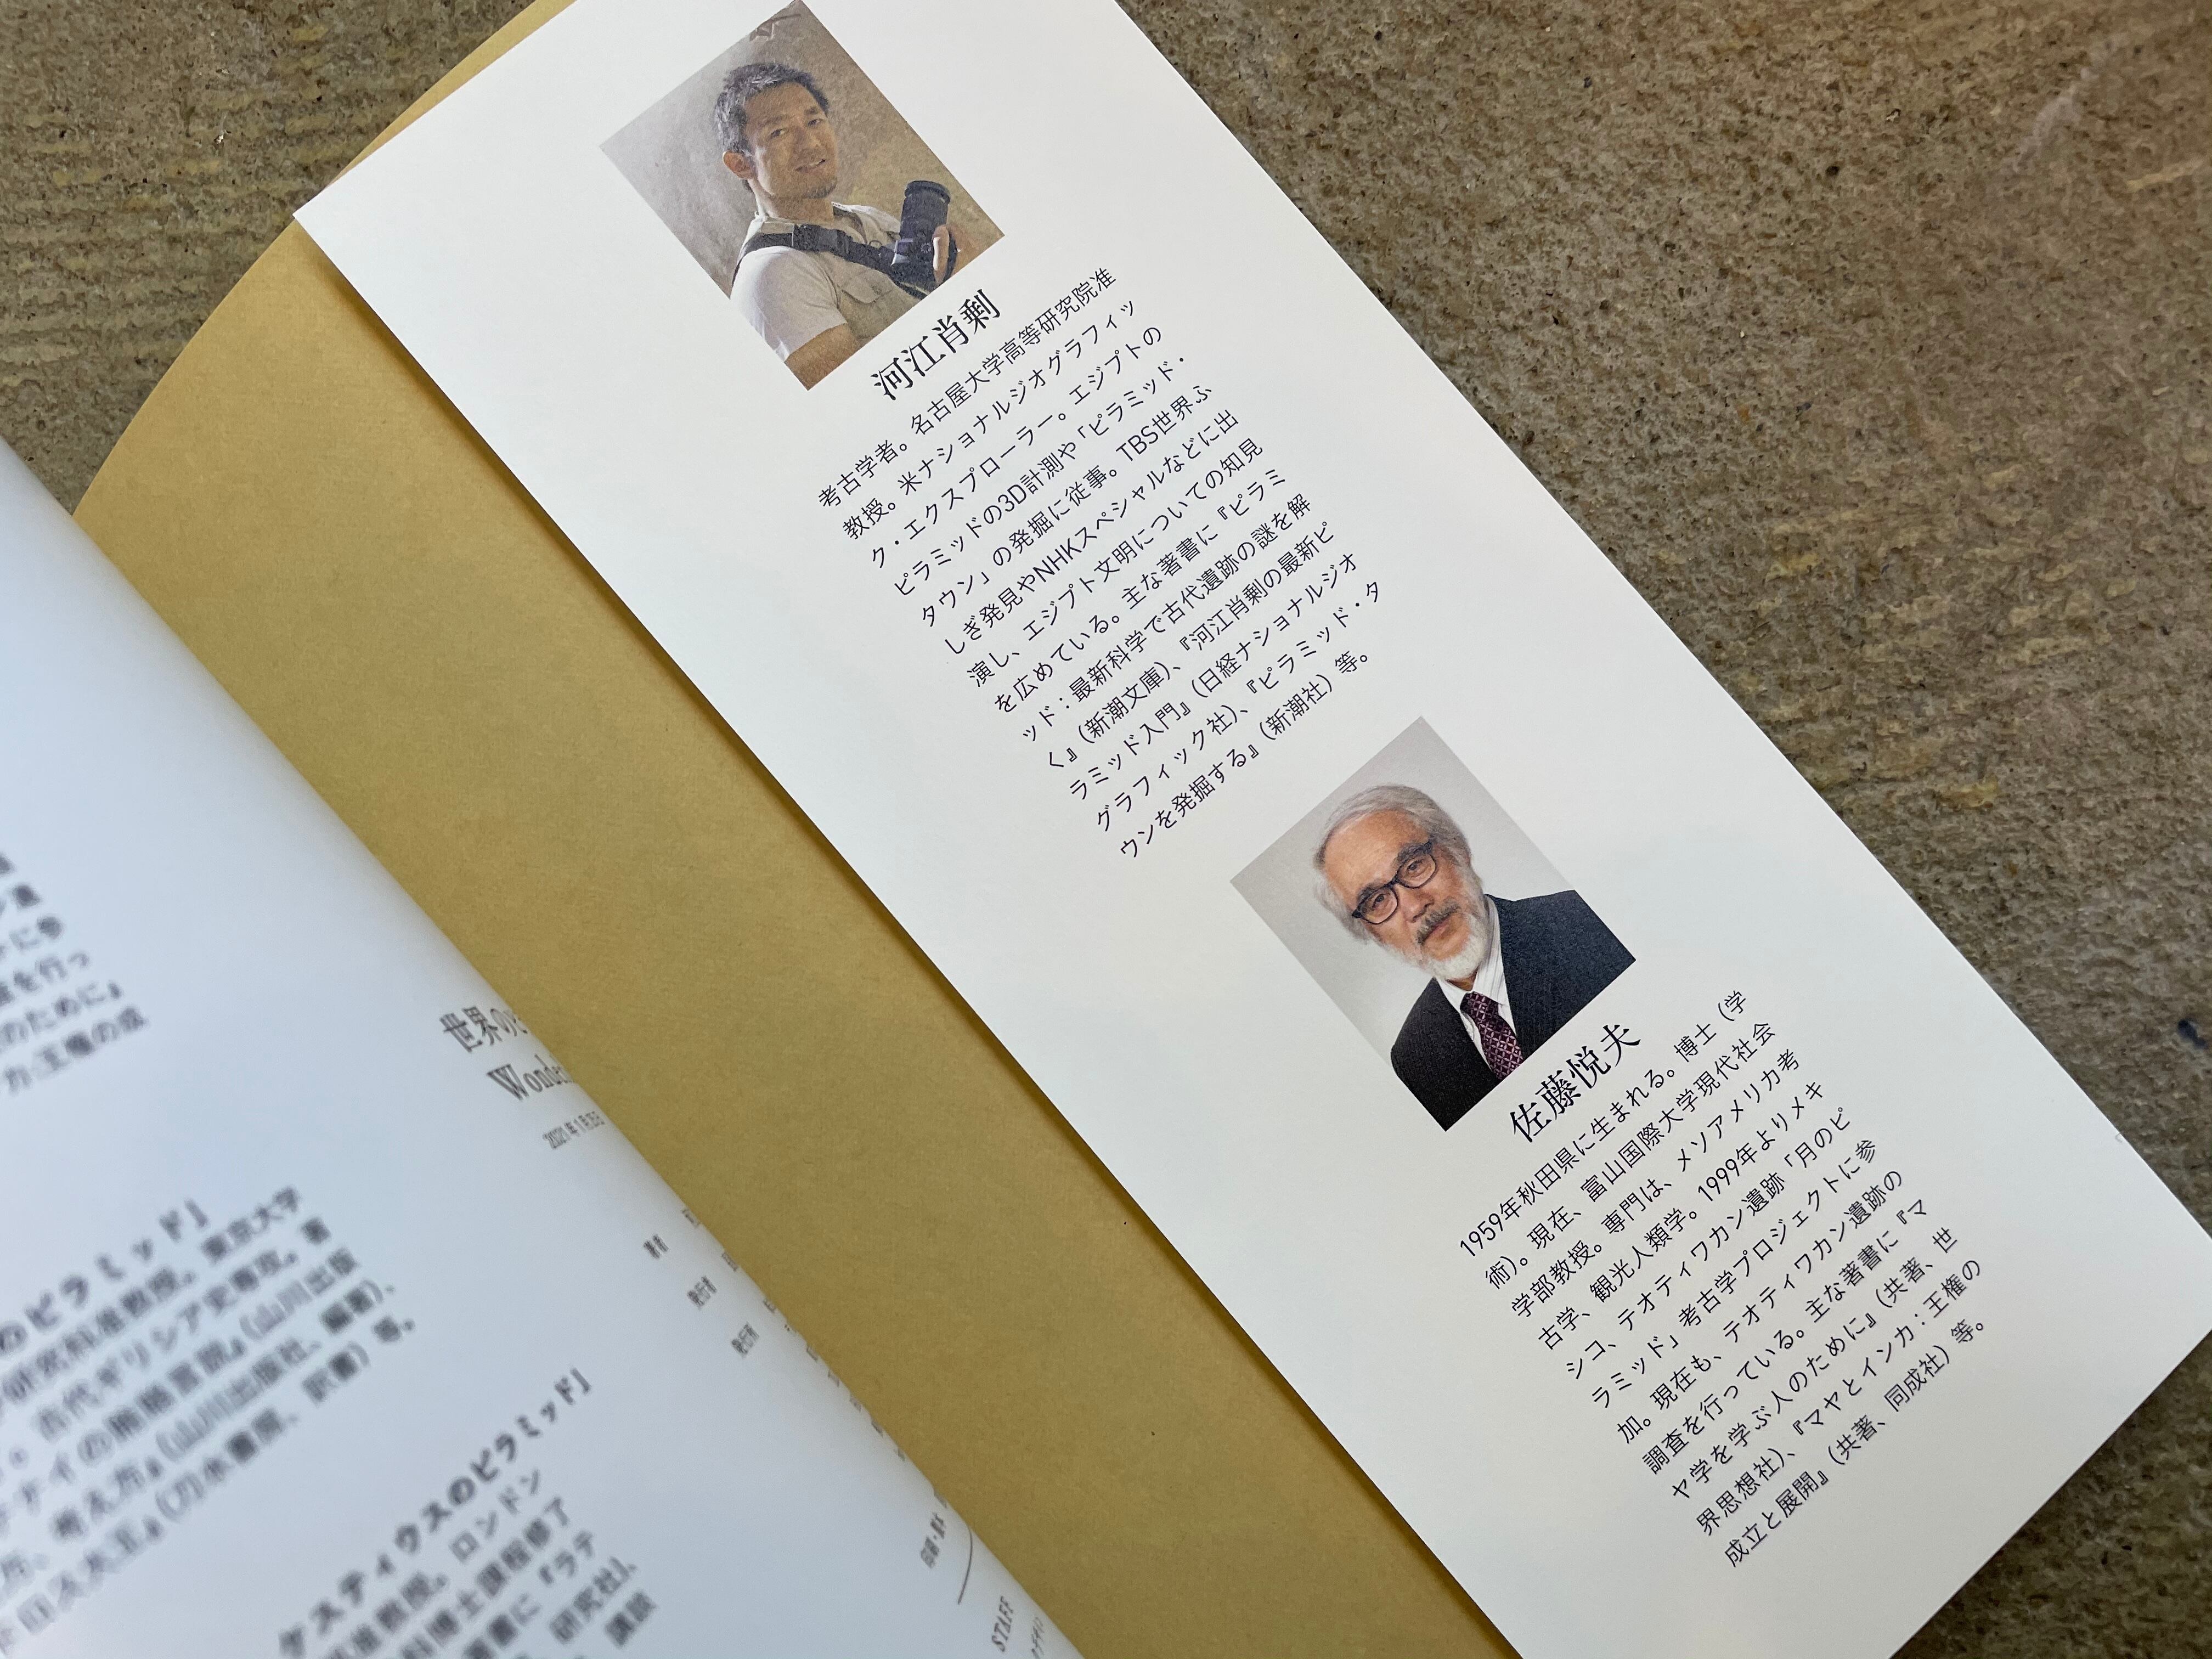 河江肖剰
考古学者。名古屋大学高等研究院准
教授。米ナショナルジオグラフィッ
ク・エクスプローラー。エジプトの
ピラミッドの3D計測や「ピラミッド・
タウン」の発掘に従事。TBS世界ふ
しぎ発見やNHKスペシャルなどに出
演し、エジプト文明についての知見
を広めている。主な著書に『ピラミ
ッド：最新科学で古代遺跡の謎を解
く』（新潮文庫）、『河江肖剰の最新ピ
ラミッド入門』（日経ナショナルジオ
グラフィック社）、『ピラミッド・タ
ウンを発掘する』（新潮社）等。
佐藤悦夫
1959年秋田県に生まれる。博士（学
術）。現在、富山国際大学現代社会
学部教授。専門は、メソアメリカ考
古学、観光人類学。1999年よりメキ
シコ、テオティワカン遺跡「月のピ
ラミッド」考古学プロジェクトに参
加。現在も、テオティワカン遺跡の
調査を行っている。主な著書に『マ
ヤ学を学ぶ人のために』（共著、世
界思想社）、『マヤとインカ：王権の
成立と展開』（共著、同成社）等。
に参
を行っ
のために』
カ:王権の成
のピラミッド」
研究科准教授。東京大学
。古代ギリシア史専攻。著
（山川出版
考え方』（山川出版社、編著）、
大王』（刀水書房、訳書）等。
ケスティウスのピラミッド」
准教授。ロンドン
科博士課程修了
著書に『ラテ
研究社）、
講談
世界の
Wonder
2021年1月25日
著者
発行者
発行所
印刷・製本
STAFF
デザイン